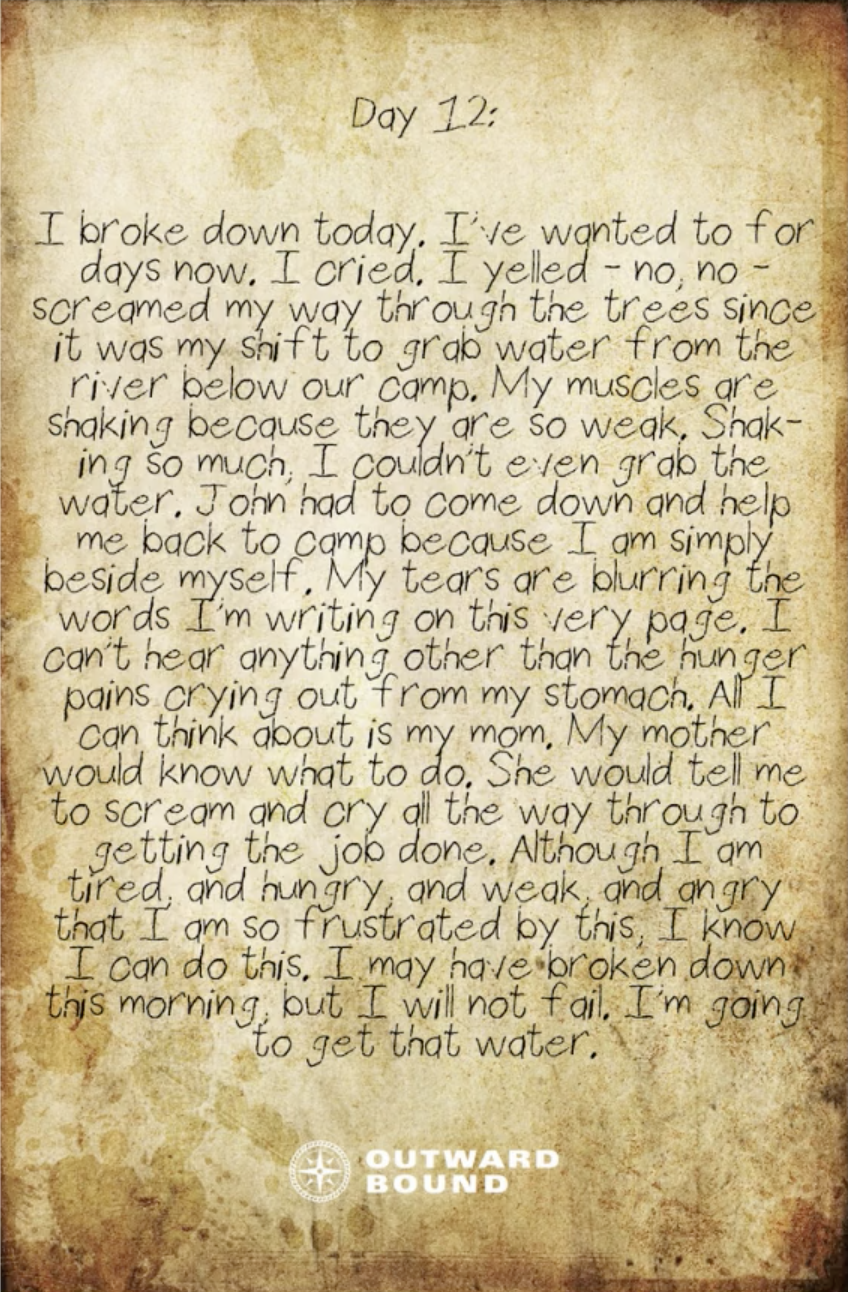 Day 12:
I broke down today. I've wanted to for
days now. I cried. I yelled - no, no -
screamed my way through the trees since
it was my shift to grab water from the
river below our camp. My muscles are
shaking because they are so weak. Shak-
ing so much, I couldn't even grab the
water. John had to come down and help
me back to camp because I am simply
beside myself. My tears are blurring the
words I'm writing on this very page. I
can't hear anything other than the hunger
pains crying out from my stomach. All I
can think about is my mom. My mother
would know what to do. She would tell me
to scream and cry all the way through to
getting the job done. Although I am
tired, and hungry, and weak, and angry
that I am so frustrated by this, I know
I can do this. I may have broken down
this morning, but I will not fail. I'm going
to get that water.
OUTWARD
BOUND